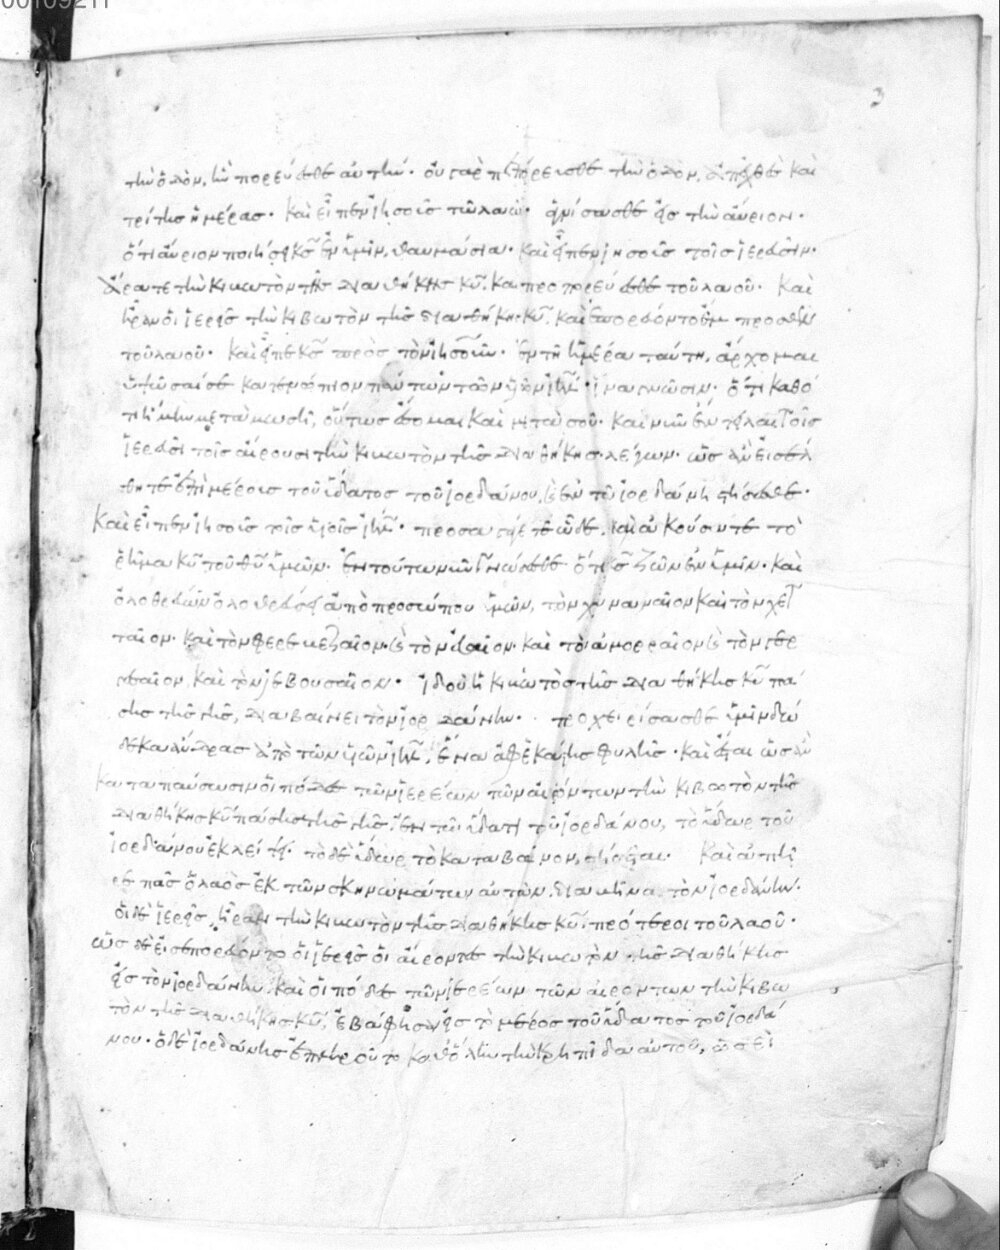 00109211
3
τὴν ὁδὸν, ἣν πορεύσεσθε αὐτήν· οὐ γὰρ πεπόρευσθε τὴν ὁδὸν, ἀπ' ἐχθὲς καὶ
τρίτης ἡμέρας· καὶ εἶπεν ἰησοῦς τῶ λαῶ· ἁγνίσασθε εἰς τὴν αὔριον·
ὅτι αὔριον ποιήσει κ̅ς̅ ἐν ἡμῖν, θαυμάσια· καὶ εἶπεν ἰησοῦς τοῖς ἱερεῦσιν·
ἄρατε τὴν κιβωτὸν τῆς διαθήκης κ̅υ̅, καὶ προπορεύεσθε τοῦ λαοῦ· καὶ
ἦραν οἱ ἱερεῖς τὴν κιβωτὸν τῆς διαθήκης κ̅υ̅, καὶ ἐπορεύοντο ἔμπροσθεν
τοῦ λαοῦ· καὶ εἶπε κ̅ς̅ πρὸς τὸν ἰησοῦν· ἐν τῆ ἡμέρα ταύτη, ἄρχομαι
ὑψῶσαί σε κατενώπιον πάντων τῶν υἱῶν ι̅η̅λ̅· ἵνα γνῶσιν· ὅτι καθό
τι ἤμην μετὰ μωσῆ, οὕτως ἔσομαι καὶ μετὰ σοῦ· καὶ νῦν ἔντειλαι τοῖς
ἱερεῦσι τοῖς αἴρουσι τὴν κιβωτὸν τῆς διαθήκης λέγων· ὡς ἂν εἰσέλ
θητε ἐπὶ μέρους τοῦ ὕδατος τοῦ ἰορδάνου, καὶ ἐν τῶ ἰορδάνη στήσεσθε·
Καὶ εἶπεν ἰησοῦς τοῖς υἱοῖς ι̅η̅λ̅· προσαγάγετε ὧδε, καὶ ἀκούσατε τὸ
ῥῆμα κ̅υ̅ τοῦ θ̅υ̅ ἡμῶν· ἐν τούτω γνώσεσθε ὅτι θ̅ς̅ ζῶν ἐν ἡμῖν· καὶ
ὀλοθρεύων ὀλοθρεύσει ἀπὸ προσώπου ἡμῶν, τὸν χαναναῖον καὶ τὸν χετ
ταῖον· καὶ τὸν φερεζαῖον· καὶ τὸν εὐαῖον· καὶ τὸν ἀμορραῖον καὶ τὸν γερ
γεσαῖον, καὶ τὸν ἰεβουσαῖον· ἰδοὺ ἡ κιβωτὸς τῆς διαθήκης κ̅υ̅ πά
σης τῆς γῆς, διαβαίνει τὸν ἰορδάνην· προχειρίσασθε ὑμῖν δώ
δεκα ἄνδρας ἀπὸ τῶν υἱῶν ι̅η̅λ̅, ἕνα ἀφ' ἑκάστης φυλῆς· καὶ ἔσται ὡς ἂν
καταπαύσωσιν οἱ πόδες τῶν ἱερέων τῶν αἰρόντων τὴν κιβωτὸν τῆς
διαθήκης κ̅υ̅ πάσης τῆς γῆς, ἐν τῶ ὕδατι τοῦ ἰορδάνου, τὸ ὕδωρ τοῦ
ἰορδάνου ἐκλείψει· τὸ δὲ ὕδωρ τὸ καταβαῖνον, στήσεται· Καὶ ἀπῆ
ρε πᾶς ὁ λαὸς ἐκ τῶν σκηνωμάτων αὐτῶν διαβῆναι τὸν ἰορδάνην·
οἱ δὲ ἱερεῖς, ἦραν τὴν κιβωτὸν τῆς διαθήκης κ̅υ̅ πρότεροι τοῦ λαοῦ·
ὡς δὲ εἰσεπορεύοντο οἱ ἱερεῖς οἱ αἴροντες τὴν κιβωτὸν τῆς διαθήκης
εἰς τὸν ἰορδάνην, καὶ οἱ πόδες τῶν ἱερέων τῶν αἰρόντων τὴν κιβω
τὸν τῆς διαθήκης κ̅υ̅, ἐβάφησαν εἰς τὸ μέρος τοῦ ὕδατος τοῦ ἰορδά
νου· ὁ δὲ ἰορδάνης ἐπληροῦτο καθ' ὅλην τὴν κρηπίδα αὐτοῦ, ὡσεὶ